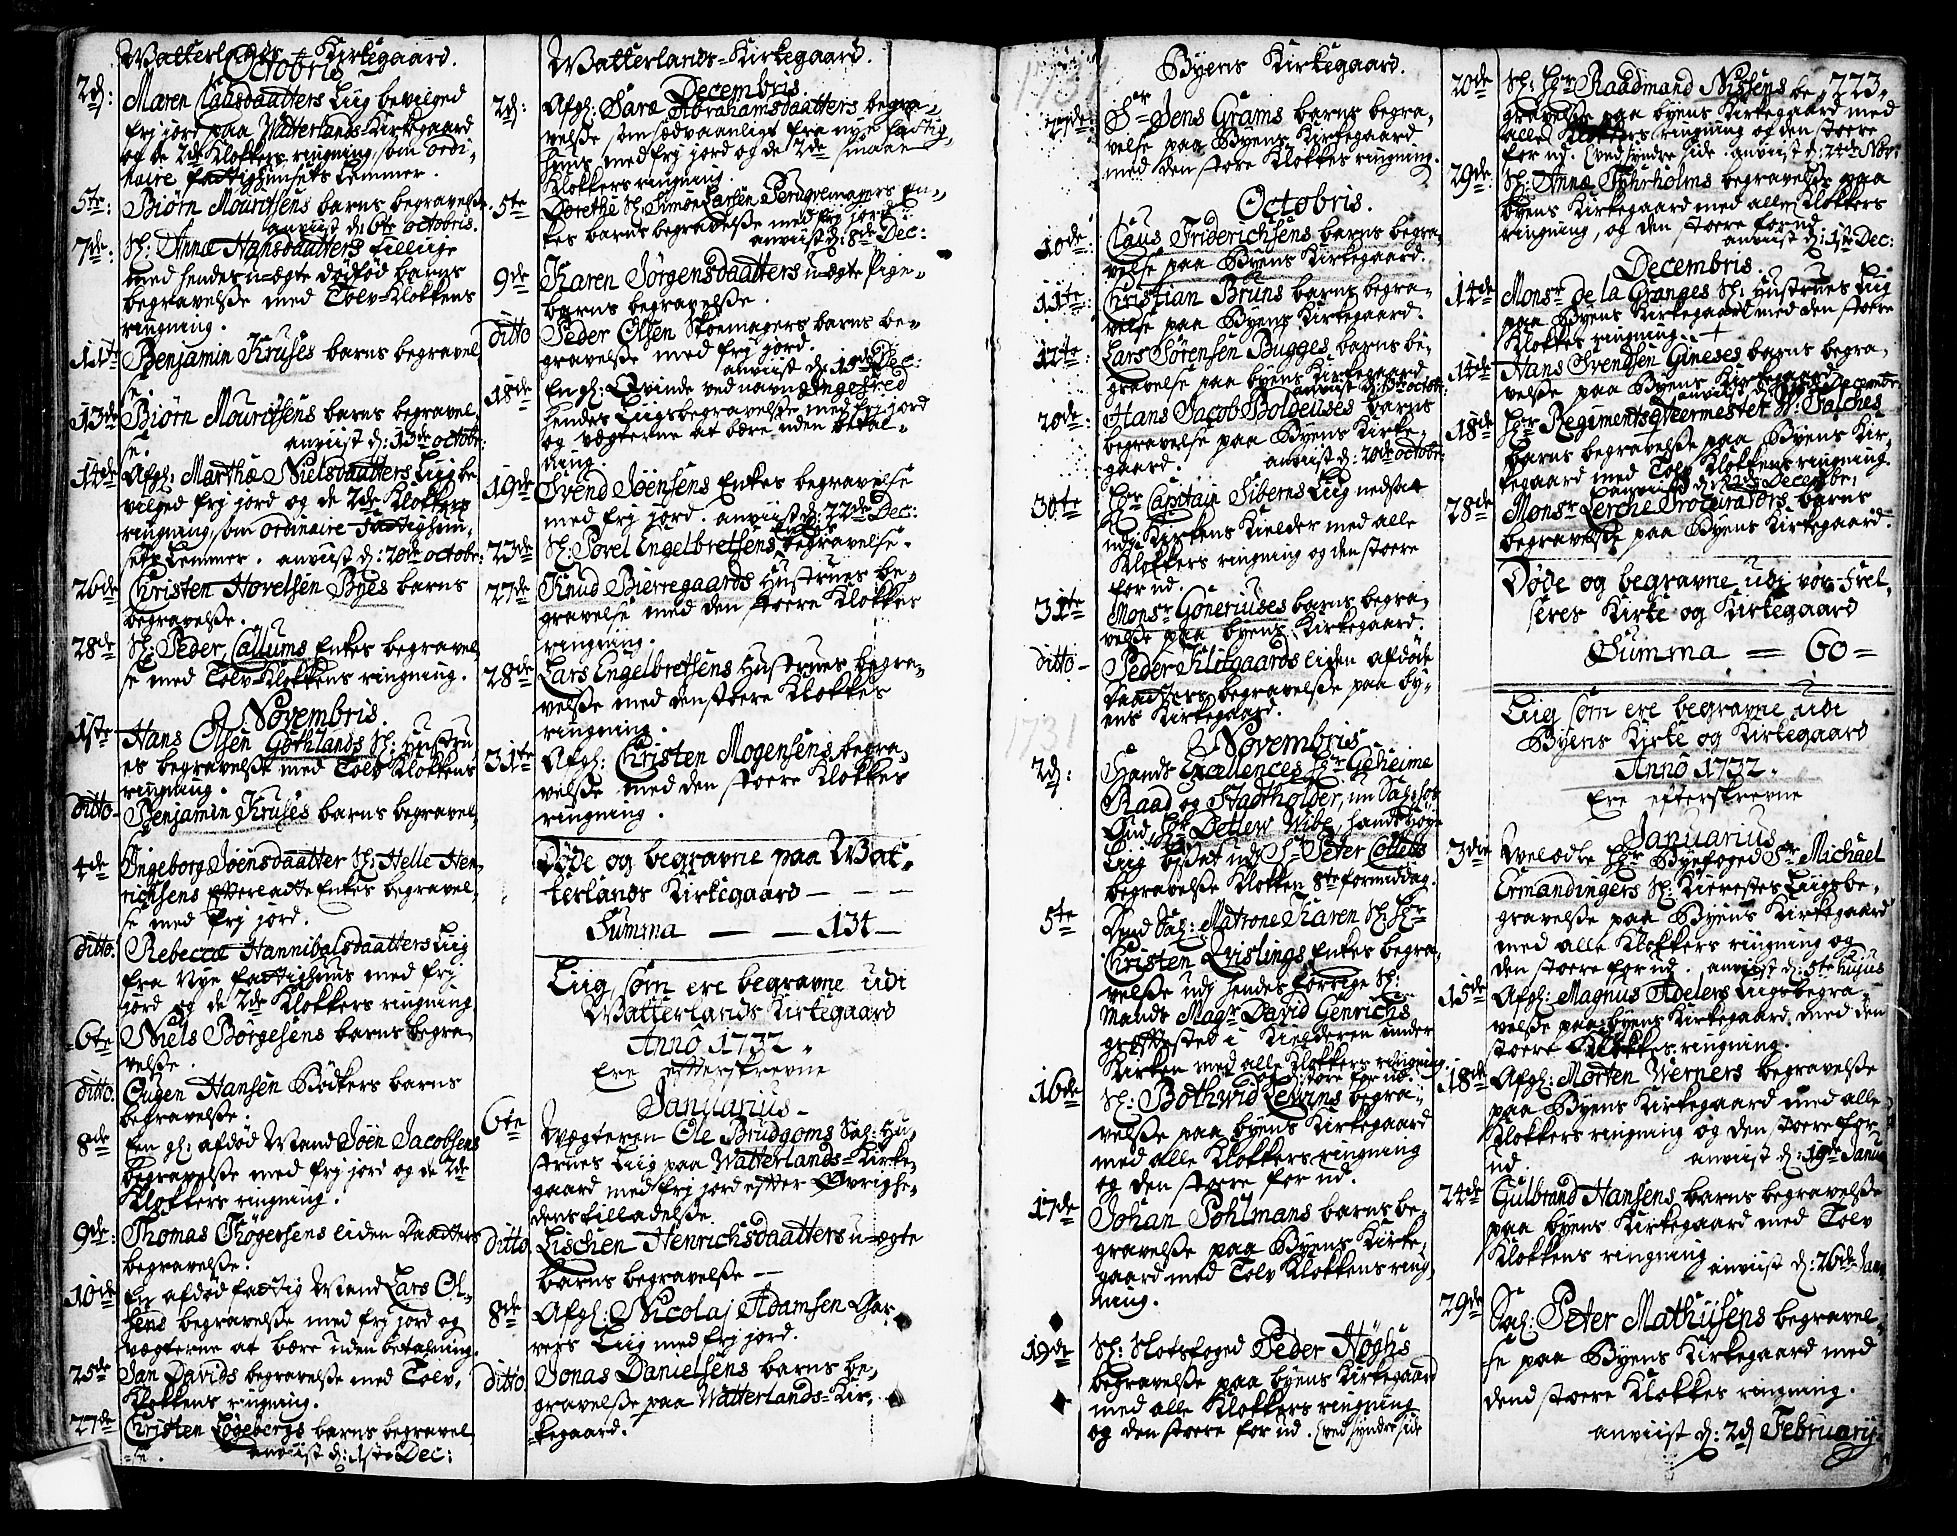 Watterlands Kirkegaard.
Octobris
2d: Maren Clausdaatters Liig bevilged
frj jord paa Watterlands Kirkegaard
og de 2de Klokkers ringning, som ordi-
naire fattighuusets Lemmer.
5te: Biørn Mouritsens barns begravelse
anviist d: 6te octobris.
7de: Sl: Anna Hansdaatters tilliige
med hendes uægte dødfød barns
begravelsse med Tolv-Klokkens
ringning.
11te Benjamin Kruses barns begravel-
se.
13de Biørn Mouritsens barns begravel-
se. anviist d: 13de octobr:
14de Afg: Marthæ Nielsdaatters Liig be-
vilged frj jord og de 2de Klokkers
ringning, som ordinaire Fattighuu-
sets Lemmer. anviist d: 20de octobr:
26de Christen Hovelsen Byes barns
begravelsse.
28de Sl: Peder Callums Enkes begravel-
se med Tolv-Klokkens ringning.
Novembris.
1ste Hans Olsen Gothlands Sl: Hustru-
es begravelsse med Tolv Klokkens
ringning.
ditto Benjamin Kruses barns begravel-
4de Ingeborg Joensdaatter Sl: Helle Hen-
richsens Efterladte Enkes begravel-
se med frj jord.
ditto. Rebecca Hannibalsdaatters Liig
fra Nye fattighuus med frj
jord og de 2de Klokkers ringning
6te Niels Børgesens barns begra-
velsse.
ditto. Eugen Hansen Bødkers barns
begravelsse.
8de En gl: afdød Mand Joen Jacobsens
begravelsse med frj jord og de 2de
Klokkers ringning.
9de: Thomas Thøgersens liden Daatters
begravelsse.
10de En afdød fattig Mand Lars Ol-
sens begravelsse med frj jord og
vægterne at bære uden betalning.
25de Jan Davids begravelsse med Tolv-
Klokkens ringning.
27de Christen Løgebergs barns begravel-
se. anviist d: 1ste Dec:
Watterlands-Kirkegaard.
Decembris.
2d: Afg: Sara Abrahamsdaatters begra-
velse som sædvaanligt fra nye fattig-
huus med frj jord og de 2de smaae
Klokkers ringning.
5te Dorethe Sl: Simon Larsen Peruqvemagers En-
kes barns begravelsse med frj jord
anviist d: 8de Dec:
9de Karen Jørgensdaatters uægte Pige-
barns begravelsse.
ditto Peder Olsen Skoemagers barns be-
gravelsse med frj jord.
anviist d: 19de Dec:
18de En gl: Qvinde ved navn Ingefred
hendes Liigsbegravelsse med frj jord
og vægterne at bære uden betal-
ning.
19de Svend Joensens Enkes begravelse
med frj jord. anviist d: 22de Dec:
23de Sl: Povel Engelbretsens begravelse.
27de Knud Bierregaards Hustrues be-
gravelse med den stoere Klokkes
ringning.
28de Lars Engelbretsens Hustrues begra-
velsse med den stoere Klokkes
ringning.
31te Afg: Christen Mogensens begra-
velsse med den stoere Klokkes
ringning.
Døde og begravne paa Wat-
terlands Kirkegaard
Summa — — 134 —
Liig, som ere begravne udi
Watterlands Kirkegaard
Anno 1732.
Ere efterskrevne
Januarius
6te Vægteren Ole Brudgoms Sal: Hu-
strues Liig paa Watterlands-Kirke-
gaard med frj jord efter Øvrighe-
dens tilladelsse.
ditto. Lischen Henrichsdaatters uægte
barns begravelsse —
8de Afg: Nicolaj Adamsen Gar-
vers Liig med frj jord.
ditto Jonas Danielsens barns be-
gravelsse paa Watterlands-Kir-
kegaard.
1731
Byens Kirkegaard.
27de Sr Jens Grams barns begra-
velse paa Byens Kirkegaard
med den store Klokkes ringning.
Octobris.
10de Claus Friderichsens barns begra-
velse paa Byens Kirkegaard.
11te Christian Bruns barns begra-
velse paa Byens Kirkegaard.
12te Lars Sørensen Bugges barns be-
gravelse paa byens Kirkegaard
anviist d: 13de octobr:
20de Hans Jacob Boldeuses barns
begravelse paa Byens Kirke-
gaard. anviist d: 20de octobr:
30te Hr Capitain Siberns Liig nedsat
udj Kirkens Kielder med alle
Klokkers ringning og den stoere
for ud.
31te Monsr Goneriuses barns begra-
velsse paa byens Kirkegaard.
ditto Peder Klitgaards liden afdøde
daatters begravelsse paa by-
ens Kirkegaard.
1731
Novembris
2d: Hands Excellences Hr Geheime
Raad og Stadtholder, nu Sal: hos
Gud, Hr Detlew Wibe, hands høye
Liig bisset udj Sr Peter Colletts
begravelse Klokken 8te formiddag.
5te Dend Sal: Matrone Karen Sl: Hr
Christen Qvislings Enkes begra-
velse udj hendes forrige Sl:
Mands Magr David Genrichs
graffsted i Kielderen under
Kirken med alle Klokkers ringning
og den store for ud.
16de Sl: Bothwid Lewins begra-
velsse paa byens Kirkegaard
med alle Klokkers ringning
og den stoere for ud.
17de Johan Pohlmans barns be-
gravelsse paa Byens Kirke-
gaard med Tolv Klokkens ring-
ning.
19de Sl: Slotsfoged Peder Høghs
begravelsse paa byens Kirkegaard
med alle Klokkers ringning
og den stoere for ud. (ved syndre side
223.
20de Sl: Hr Raadmand Nissens be-
gravelsse paa byens Kirkegaard med
alle Klokkers ringning og den stoere
for ud. (ved syndre side. anviist d: 24de Nov:
29de Sl: Anna Fohrholms begravelsse paa
byens Kirkegaard med alle Klokkers
ringning, og den stoere for ud
anviist d: 1ste Dec:
Decembris.
14de Monsr de la Granges Sl: Hustrues Liig
paa Byens Kirkegaard med den stoere
Klokkes ringning.
14de Hans Svendsen Gineses barns begra-
velsse paa Byens Kirkegaard
18de Hr Regimentsqveermester W: Salches
barns begravelsse paa Byens Kir-
kegaard med Tolv Klokkens ringning.
anviist d: 22de Decembr:
28de Monsr Lerche Procurators barns
begravelsse paa Byens Kirkegaard.
Døde og begravne udi vor-Frel-
seres Kirke og Kirkegaard
Summa — 60 —
Liig som ere begravne udi
Byens Kirke og Kirkegaard
Anno 1732.
Ere efterskrevne
Januarius
3die Welædle Hr Byefoged Sr Michael
Ermandingers Sl: Kierestes Liigsbe-
gravelsse paa Byens Kirkegaard
med alle Klokkers ringning og
den stoere for ud. anviist d: 5te hujus
15de Afg: Magnus Adelers Liigsbegra-
velsse paa byens Kirkegaard med den
stoere Klokkes ringning.
18de Afg: Morten Werners begravelsse
paa Byens Kirkegaard med alle
Klokkers ringning og den stoere for
ud. anviist d: 19de Janua
24de Gulbrand Hansens barns begravelsse
paa byens Kirkegaard med Tolv
Klokkens ringning anviist d: 26de Jan
29de Sal: Peter Mathiisens begravel-
se paa Byens Kirkegaard med
dend stoere Klokkes ringning.
anviist d: 2d Februarij